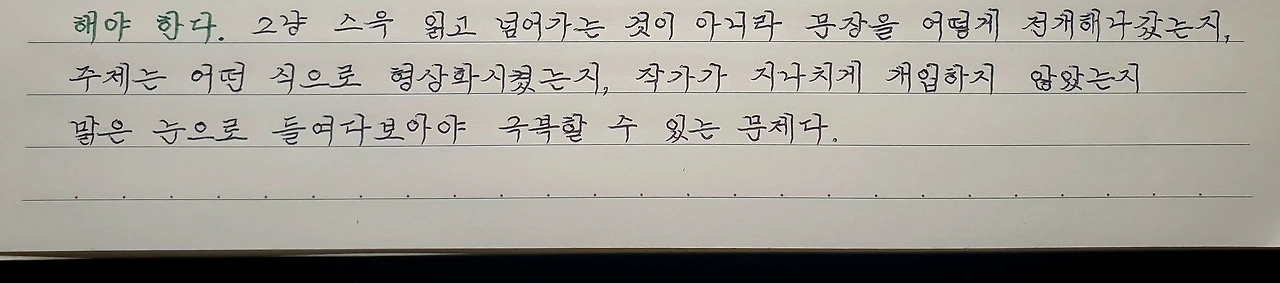 해야 한다. 그냥 스윽 읽고 넘어가는 것이 아니라 문장을 어떻게 전개해나갔는지,
주제는 어떤 식으로 형상화시켰는지, 작가가 지나치게 개입하지 않았는지
맑은 눈으로 들여다보아야 극복할 수 있는 문제다.